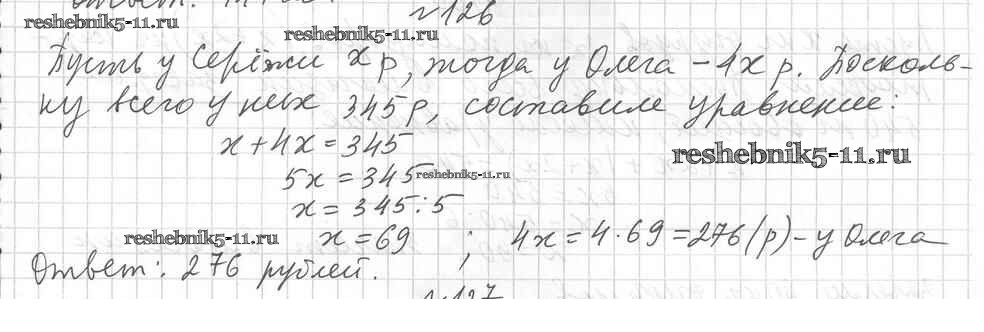 №126
reshebnik5-11.ru
reshebnik5-11.ru
Пусть у Серёжи x р, тогда у Олега - 4x р. Посколь-
ку всего у них 345 р, составим уравнение:
x + 4x = 345
reshebnik5-11.ru
5x = 345
reshebnik5-11.ru
x = 345 : 5
reshebnik5-11.ru
x = 69 ; 4x = 4 · 69 = 276 (р) - у Олега
Ответ: 276 рублей.
№127